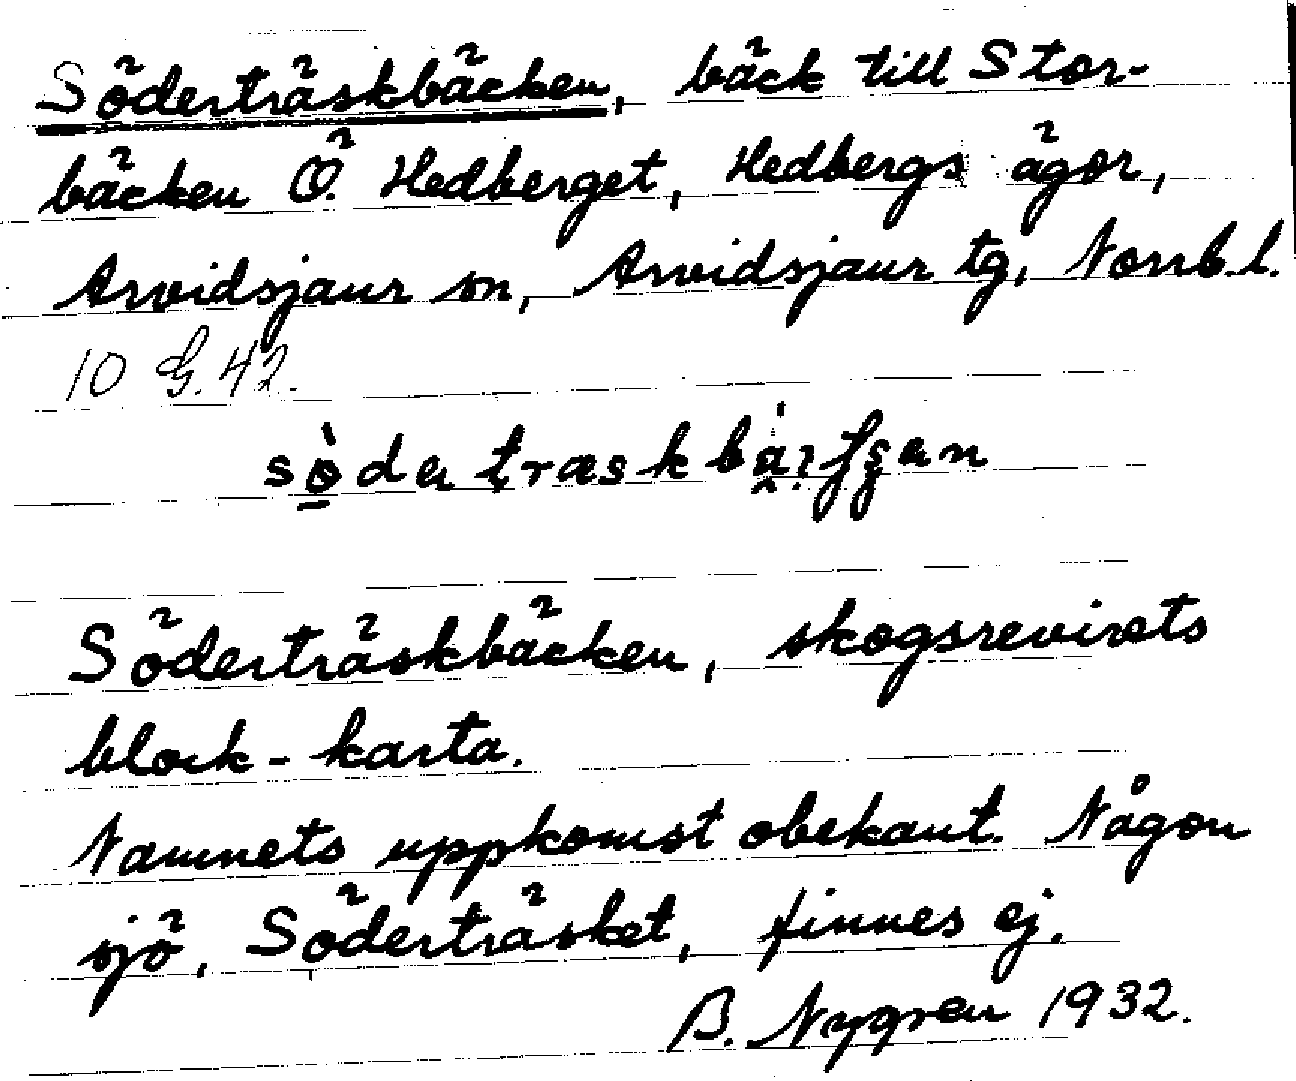 Söderträskbäcken, bäck till Stor-
bäcken Ö. Hedberget, Hedbergs ägor,
Arvidsjaur sn, Arvidsjaur tg, Norrb. l.
10 G. 42.
Söderträskbäcken, skogsrevirets
block-karta.
Namnets uppkomst obekant. Någon
sjö, Söderträsket, finnes ej.
B. Nygren 1932.